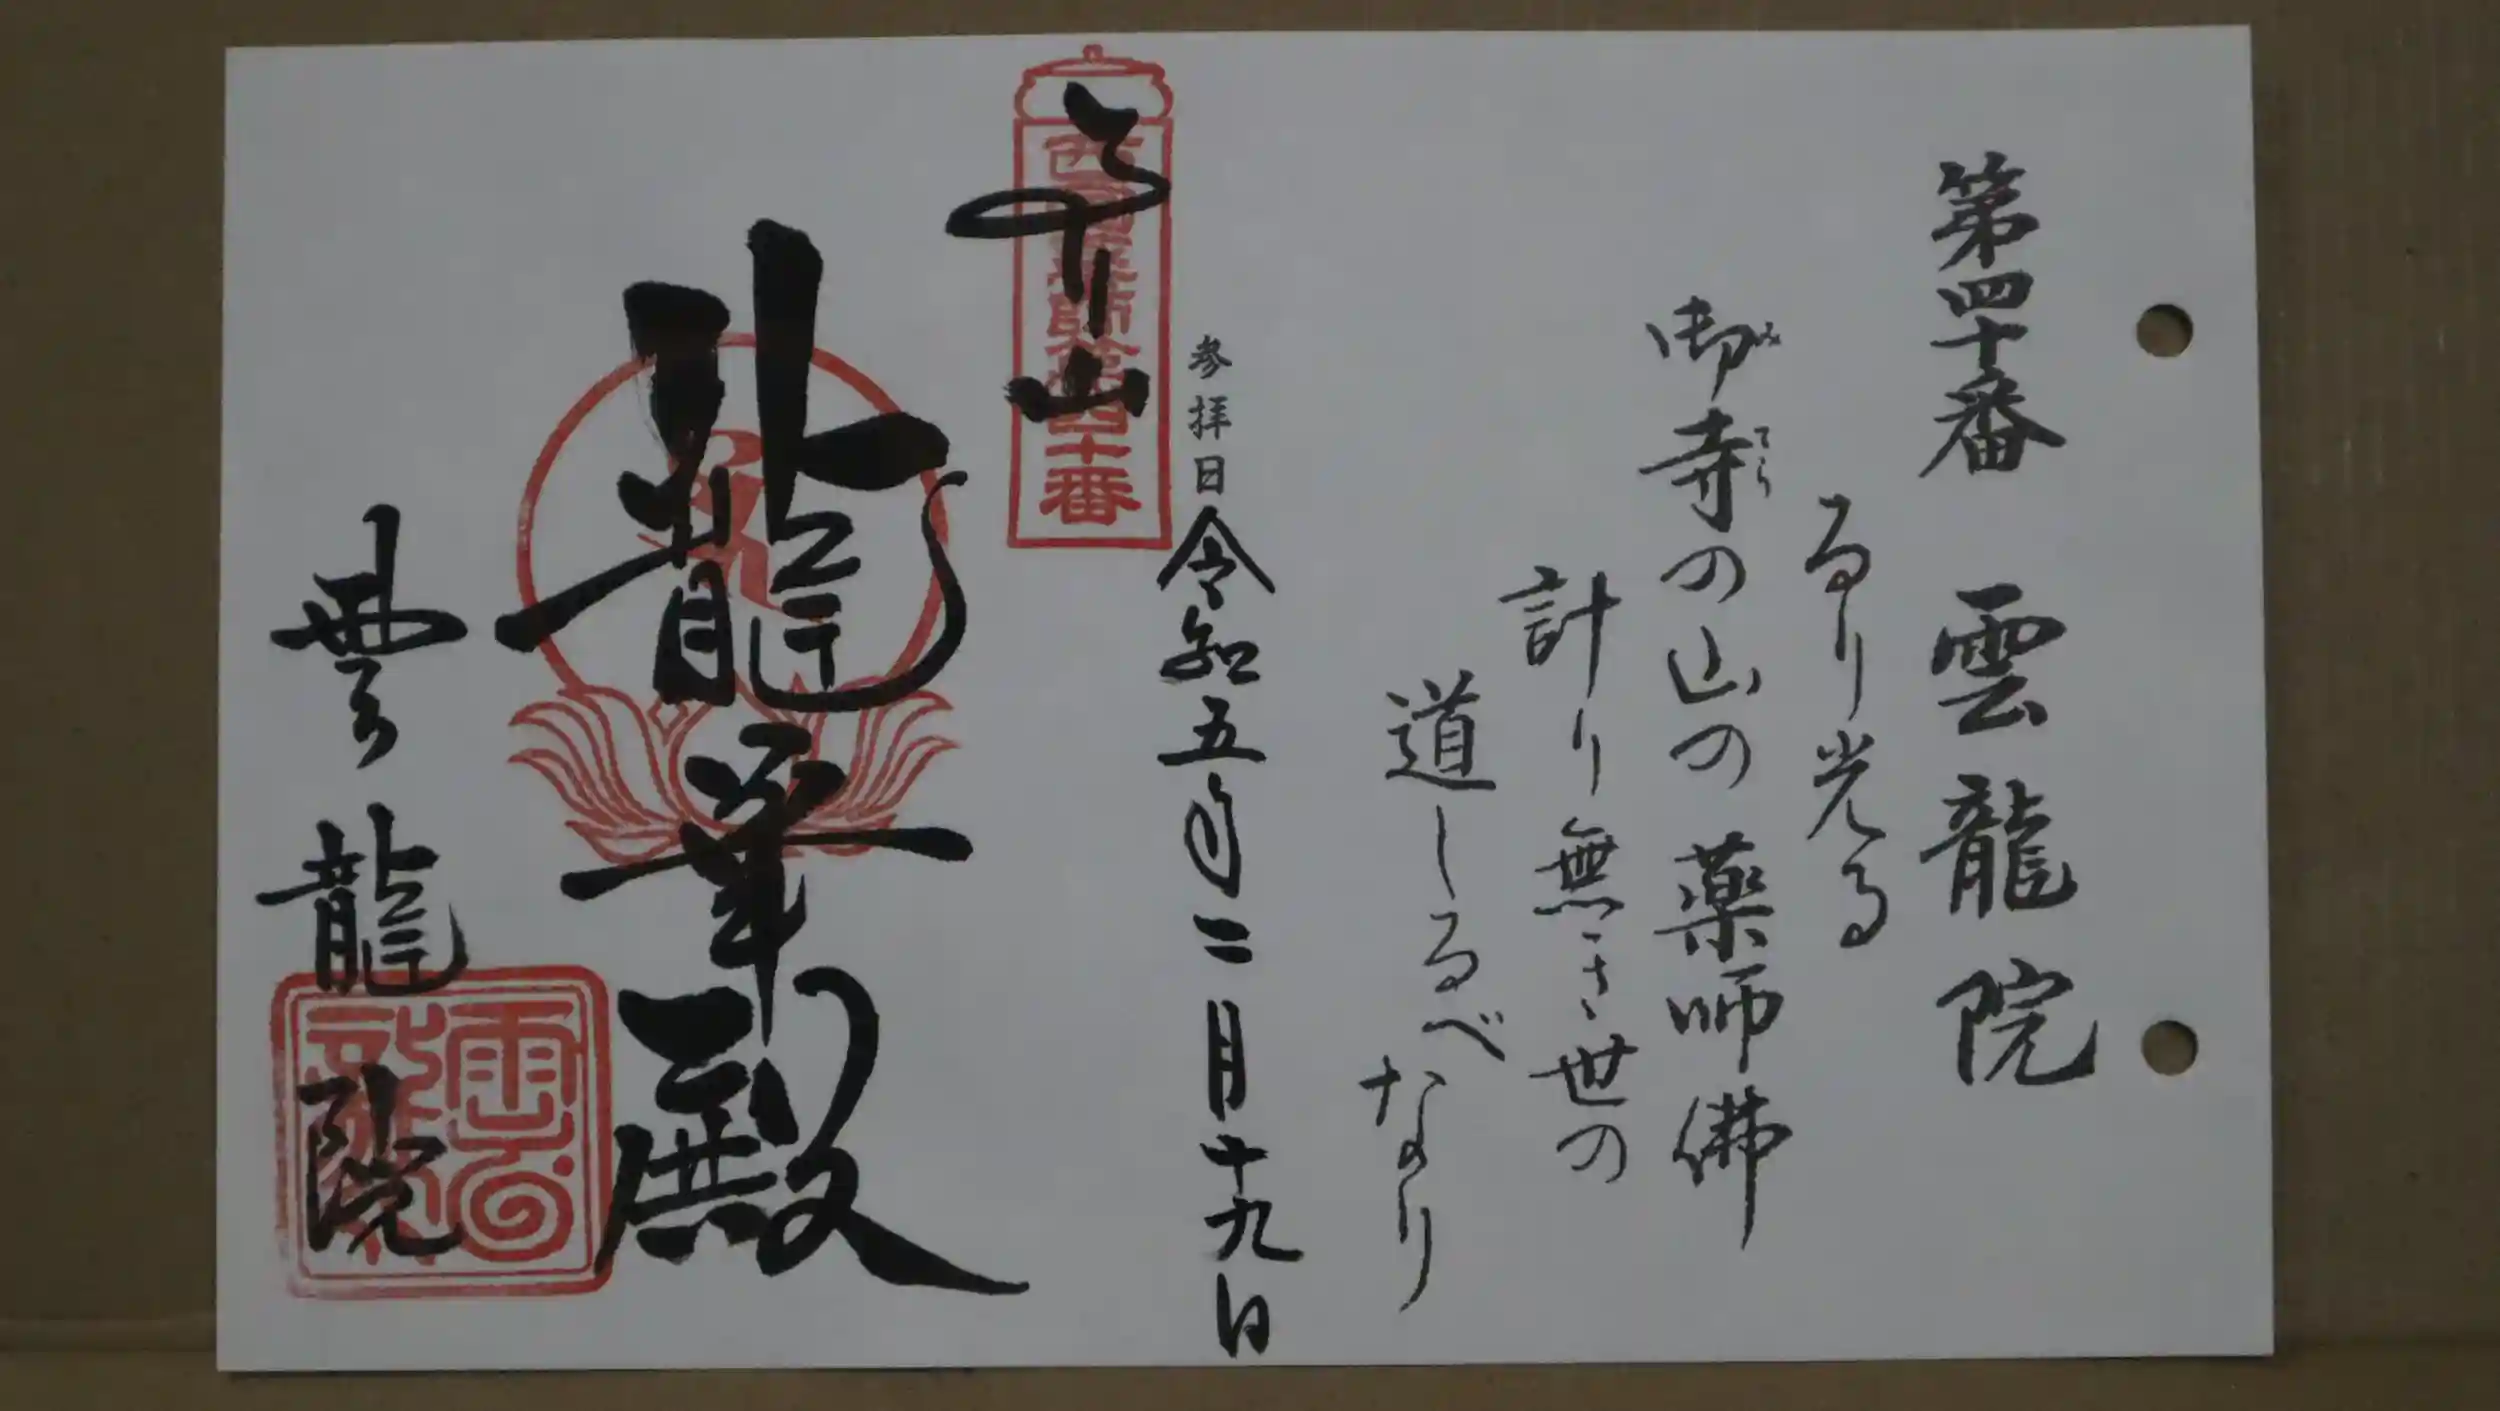 第四十番 雲龍院
るり光る
御寺の山の薬師佛
計り無き世の
道しるべなり
みてら
参拝日 令和五年二月十九日
西国薬師第四十番
龍華殿
雲龍院
雲龍